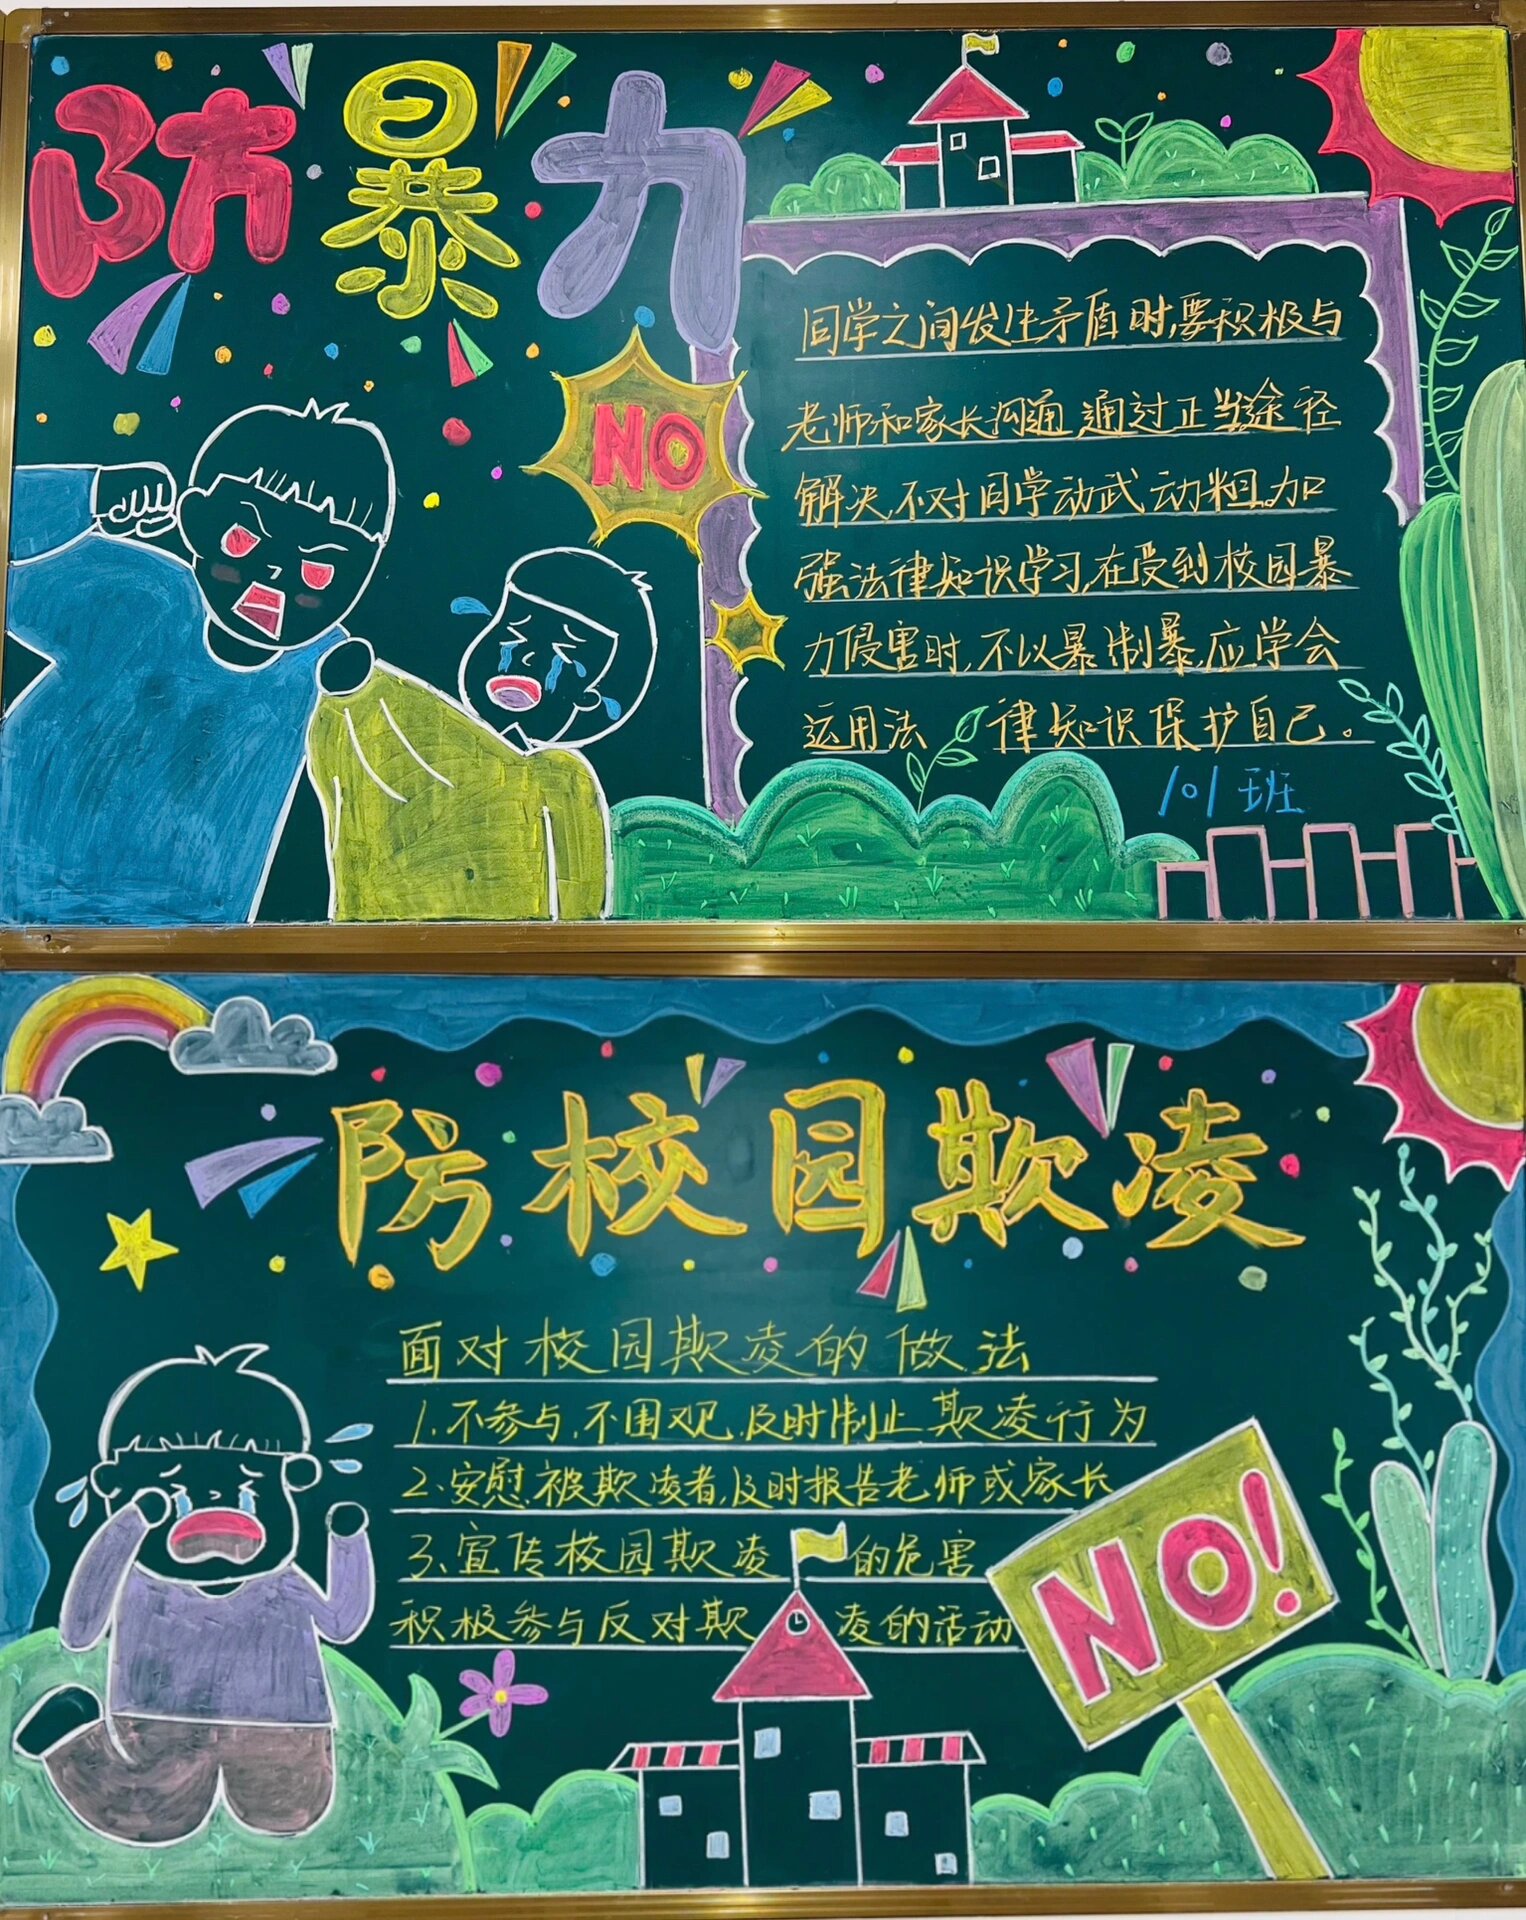 防暴力
NO
同学之间发生矛盾时,要积极与
老师和家长沟通,通过正当途径
解决,不对同学动武动粗。加
强法律知识学习,在受到校园暴
力侵害时,不以暴制暴,应学会
运用法律知识保护自己。
101班
防校园欺凌
面对校园欺凌的做法
1.不参与,不围观,及时制止欺凌行为
2、安慰被欺凌者,及时报告老师或家长
3、宣传校园欺凌的危害
积极参与反对欺凌的活动
NO!